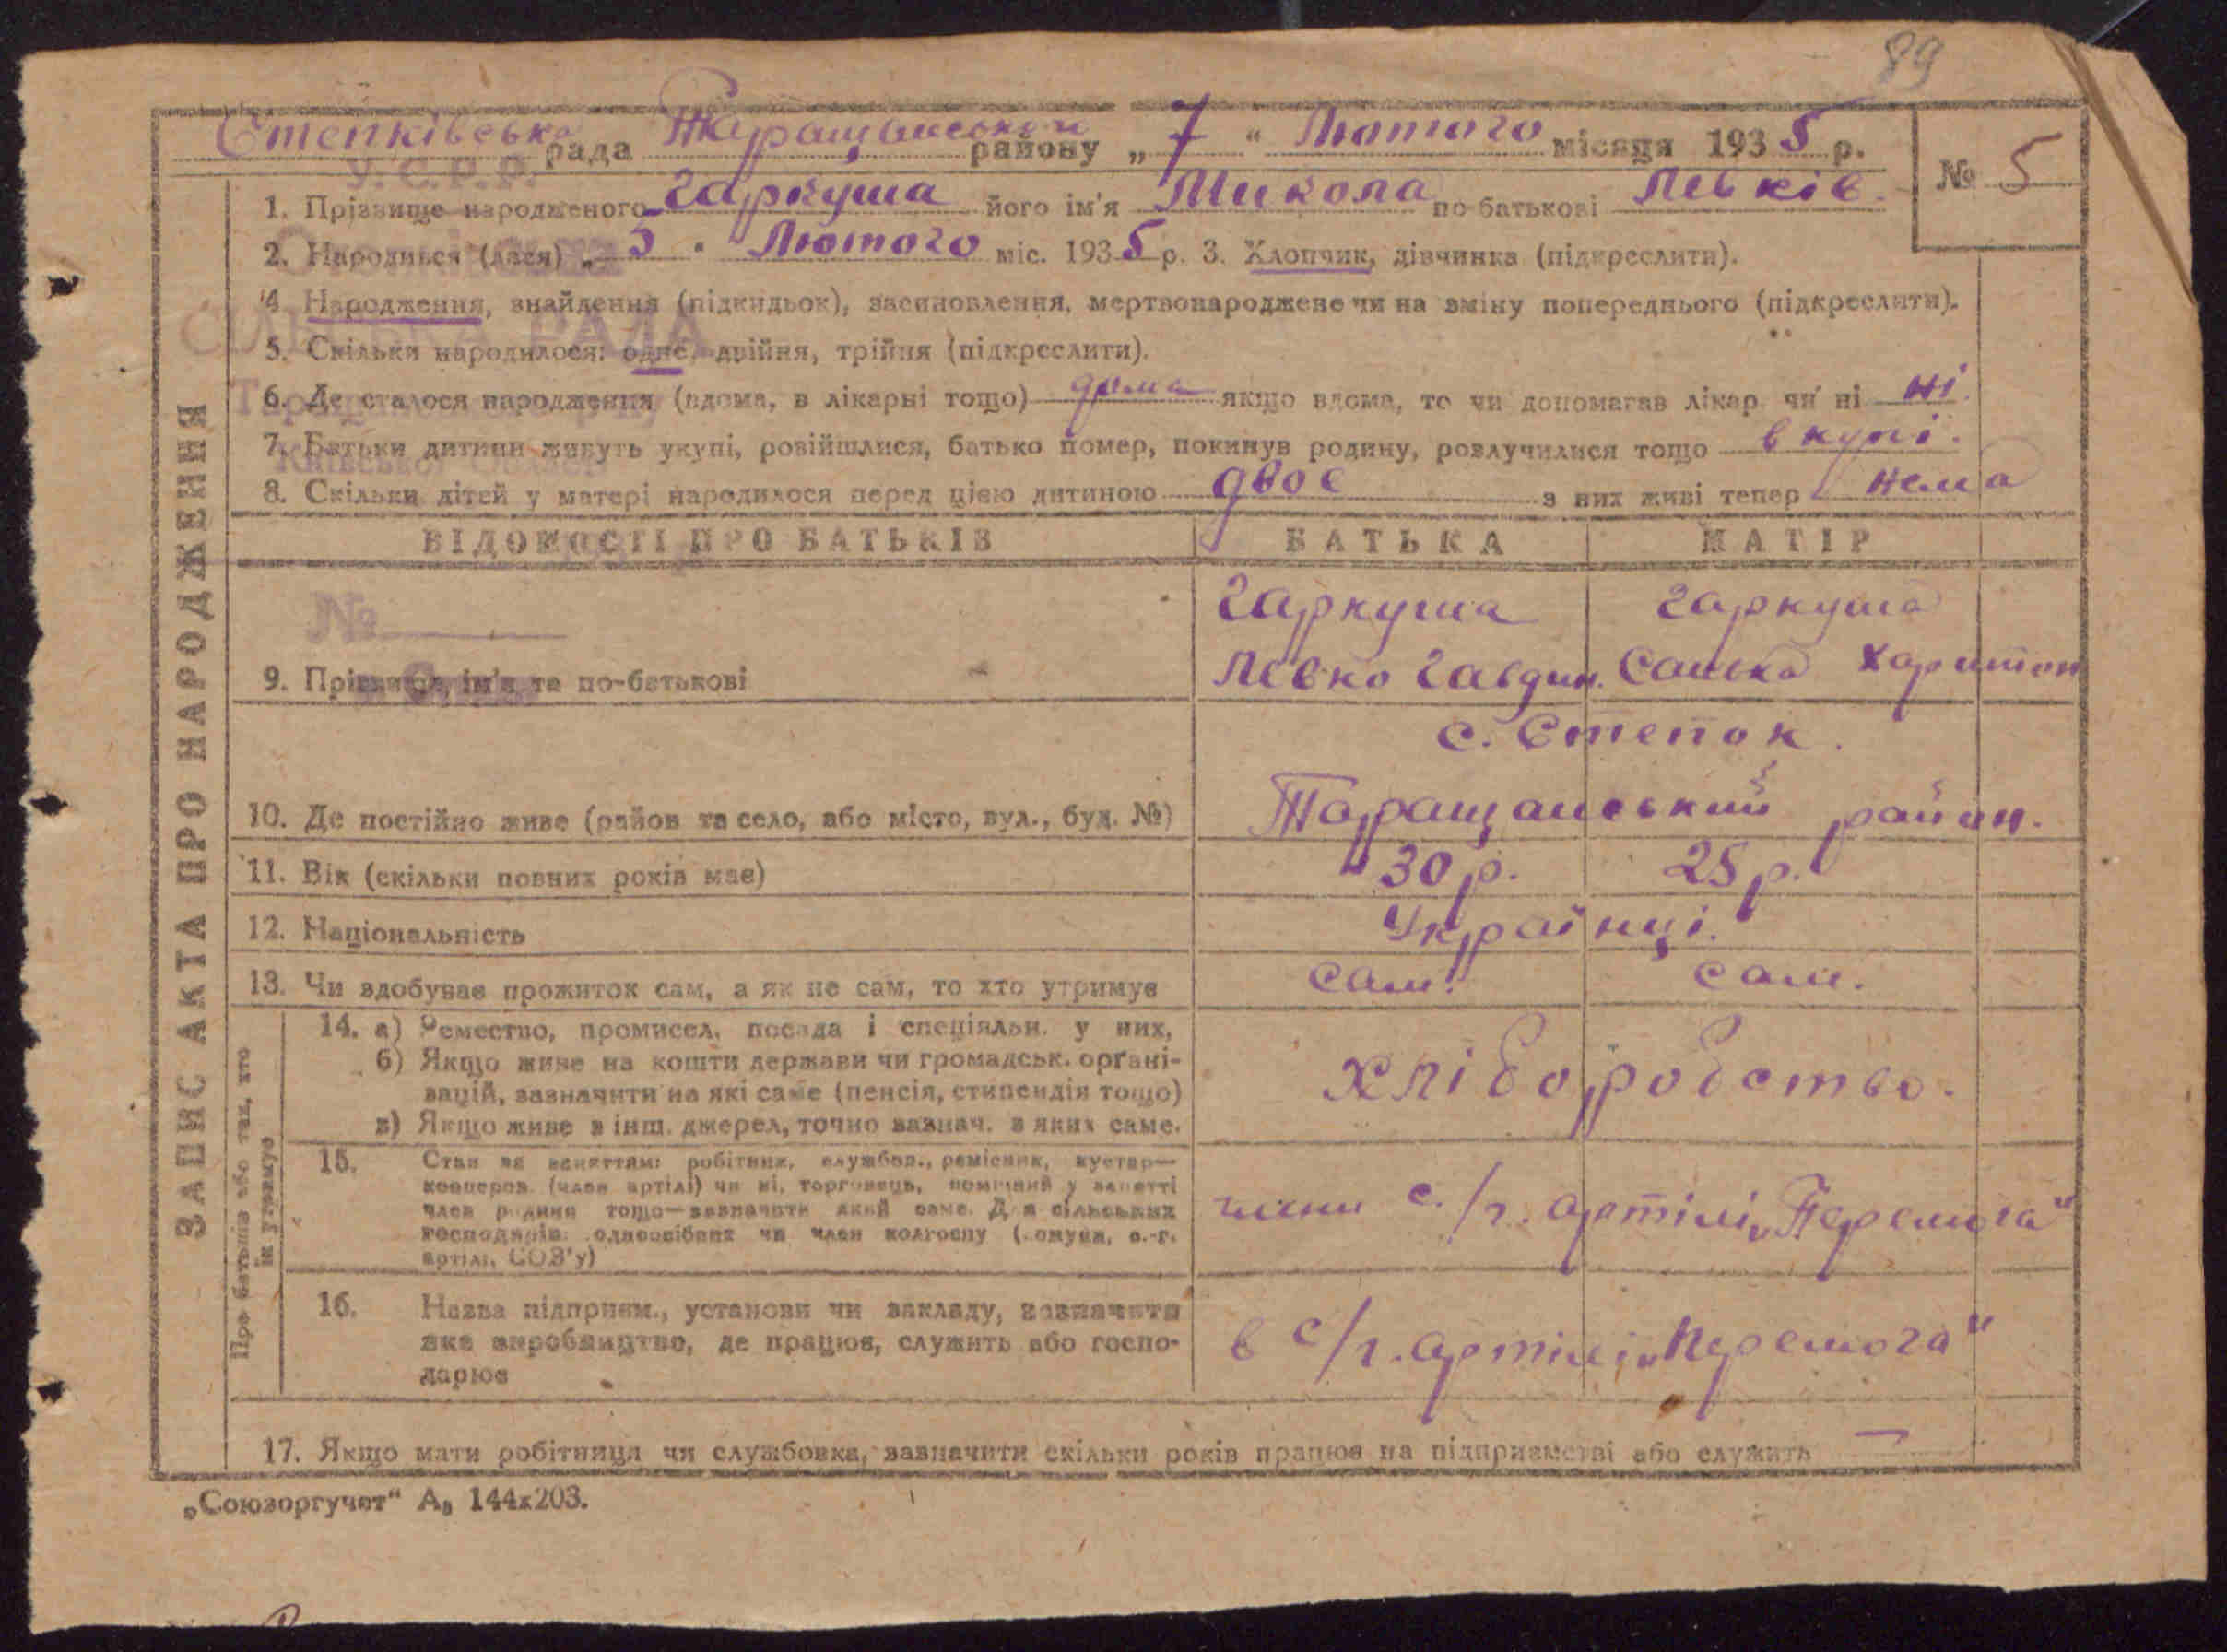 89
Степківська рада Таращанського району „7“ Лютого місяця 1935 р.
№ 5
У.С.Р.Р.
1. Прізвище народженого Гаркуша його ім'я Микола по-батькові Левків.
2. Народився (лася) „5“ Лютого міс. 1935 р. 3. Хлопчик, дівчинка (підкреслити).
4. Народження, знайдення (підкидьок), засиновлення, мертвонароджене чи на зміну попереднього (підкреслити).
СІЛЬ РАДА
5. Скільки народилося: одне, двійня, трійня (підкреслити).
6. Де сталося народження (вдома, в лікарні тощо) дома якщо вдома, то чи допомагав лікар чи ні ні.
7. Батьки дитини живуть укупі, розійшлися, батько помер, покинув родину, розлучилися тощо вкупі.
8. Скільки дітей у матері народилося перед цією дитиною двоє з них живі тепер нема
ВІДОМОСТІ ПРО БАТЬКІВ БАТЬКА МАТІР
№
Гаркуша Гаркуша
9. Прізвище, ім'я та по-батькові Левко Гавдин. Санька Харитон
с. Степок.
10. Де постійно живе (район та село, або місто, вул., буд. №) Таращанський район.
11. Вік (скільки повних років має) 30 р. 25 р.
12. Національність Українці.
13. Чи здобуває прожиток сам, а як не сам, то хто утримує сам. сам.
14. а) Ремество, промисел, посада і спеціяльн. у них,
б) Якщо живе на кошти держави чи громадськ. орґані-
зацій, зазначити на які саме (пенсія, стипендія тощо)
в) Якщо живе з інш. джерел, точно зазнач. з яких саме.
хліборобство.
15. Стан за заняттям: робітник, службов., ремісник, кустар—
кооперов. (член артілі) чи ні, торговець, помічний у занятті
член родини тощо—зазначити який саме. Для сільських
господарів: одноосібник чи член колгоспу (комуни, с.-г.
артілі, СОЗ'у)
члени с./г. артілі „Перемога“
16. Назва підприєм., установи чи закладу, зазначити
яке виробництво, де працює, служить або госпо-
дарює
в с/г. артілі „Перемога“
17. Якщо мати робітниця чи службовка, зазначити скільки років працює на підприємстві або служить —
ЗАПИС АКТА ПРО НАРОДЖЕННЯ
Про батьків або тих, хто
їх утримує
„Союзоргучет“ А₅ 144х203.